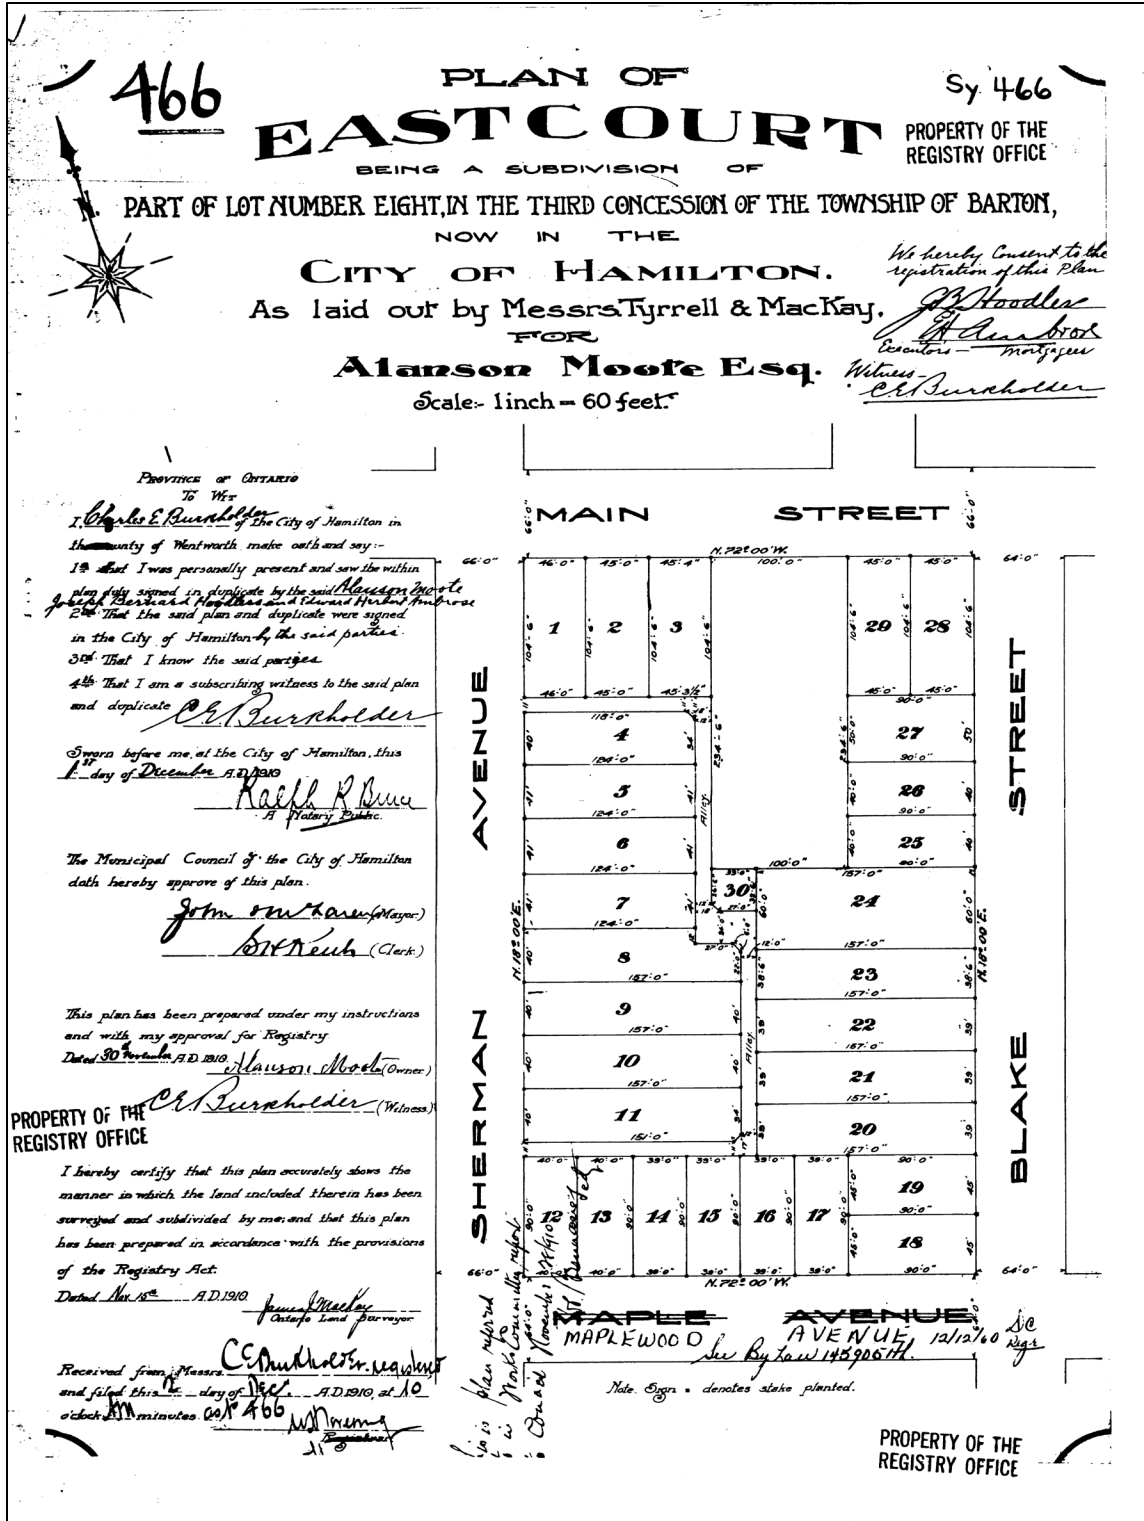 466
PLAN OF
Sy. 466
EASTCOURT
PROPERTY OF THE
REGISTRY OFFICE
BEING A SUBDIVISION OF
N.
PART OF LOT NUMBER EIGHT, IN THE THIRD CONCESSION OF THE TOWNSHIP OF BARTON,
NOW IN THE
CITY OF HAMILTON.
As laid out by Messrs. Tyrrell & MacKay,
FOR
Alanson Moote Esq.
Scale:- 1 inch = 60 feet.
We hereby Consent to the
registration of this Plan
JB Hoodless
EH Ambrose
Executors - Mortgagees
Witness -
C.E. Burkholder
PROVINCE OF ONTARIO
TO WIT
I, Charles E Burkholder of the City of Hamilton in
the County of Wentworth make oath and say:-
1st That I was personally present and saw the within
plan duly signed in duplicate by the said Alanson Moote
Joseph Bernard Hoodless and Edward Herbert Ambrose
2nd That the said plan and duplicate were signed
in the City of Hamilton by the said parties.
3rd That I know the said parties
4th That I am a subscribing witness to the said plan
and duplicate C E Burkholder
Sworn before me, at the City of Hamilton, this
1st day of December A.D. 1910
Ralph R Bruce
A Notary Public.
The Municipal Council of the City of Hamilton
doth hereby approve of this plan.
John McLaren (Mayor.)
S H Kent (Clerk.)
This plan has been prepared under my instructions
and with my approval for Registry
Dated 30th November A.D. 1910. Alanson Moote (Owner)
C E Burkholder (Witness)
PROPERTY OF THE
REGISTRY OFFICE
I hereby certify that this plan accurately shows the
manner in which the land included therein has been
surveyed and subdivided by me; and that this plan
has been prepared in accordance with the provisions
of the Registry Act.
Dated Nov. 15th A.D. 1910.
James J MacKay
Ontario Land Surveyor
Received from Messrs. C E Burkholder. registered
and filed this 2 day of Dec. A.D. 1910, at 10
o'clock AM minutes as No 466
Registrar
MAIN STREET
66'0"
66'0"
66'0"
N. 72°00' W.
64'0"
46'0" 45'0" 45'4" 100'0" 45'0" 45'0"
1 2 3 29 28
104'6" 104'6" 104'6" 104'6" 104'6" 104'6" 104'6"
46'0" 45'0" 45'3½" 45'0" 45'0"
90'0"
118'0"
40' 4 34' 234'6" 234'6" 50'0" 27 50'
124'0" 90'0"
41' 5 41' Alley 40'0" 26 40'
124'0" 90'0"
41' 6 41' 40'0" 25 40'
124'0" 100'0" 90'0"
33'0" 157'0"
41' 7 41' 30 60'0" 24 60'0"
124'0" 27'0"
N. 18°00' E.
N. 18°00' E.
27'0" 12'0" 157'0"
40' 8 22'0" 38'6" 23 38'6"
157'0" 157'0"
40' 9 40' 39' 22 39'
157'0" 157'0"
40' 10 40' Alley 39' 21 39'
157'0" 157'0"
40' 11 34' 39' 20 39'
151'0" 157'0"
40'0" 40'0" 39'0" 39'0" 39'0" 39'0" 90'0"
90'0" 12 13 90'0" 14 90'0" 15 90'0" 16 90'0" 17 45'0" 19 45'
90'0"
45'0" 18 45'
40'0" 39'0" 39'0" 39'0" 39'0" 90'0"
66'0"
N. 72°00' W.
64'0"
SHERMAN AVENUE
BLAKE STREET
MAPLE AVENUE
MAPLEWOOD AVENUE 12/12/60
See By Law
Note. Sign . denotes stake planted.
This is plan referred
to in Works Committee report
to Council November
PROPERTY OF THE
REGISTRY OFFICE